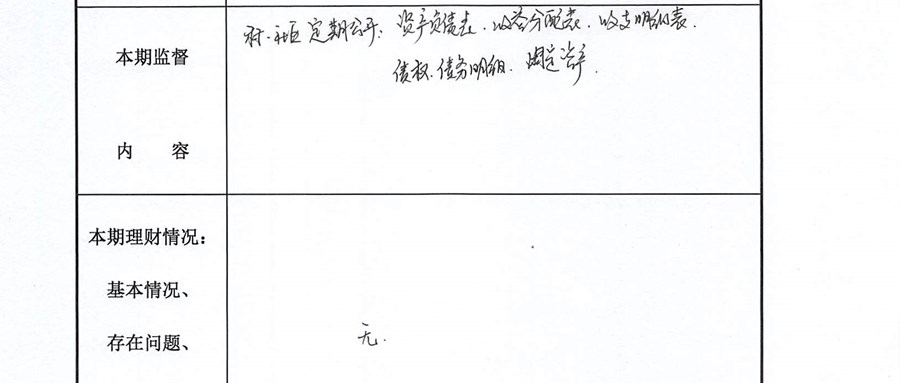 村.社区定期公开：资产负债表．收益分配表．收支明细表．
本期监督
债权．债务明细．固定资产．
内 容
本期理财情况：
基本情况、
存在问题、
无．